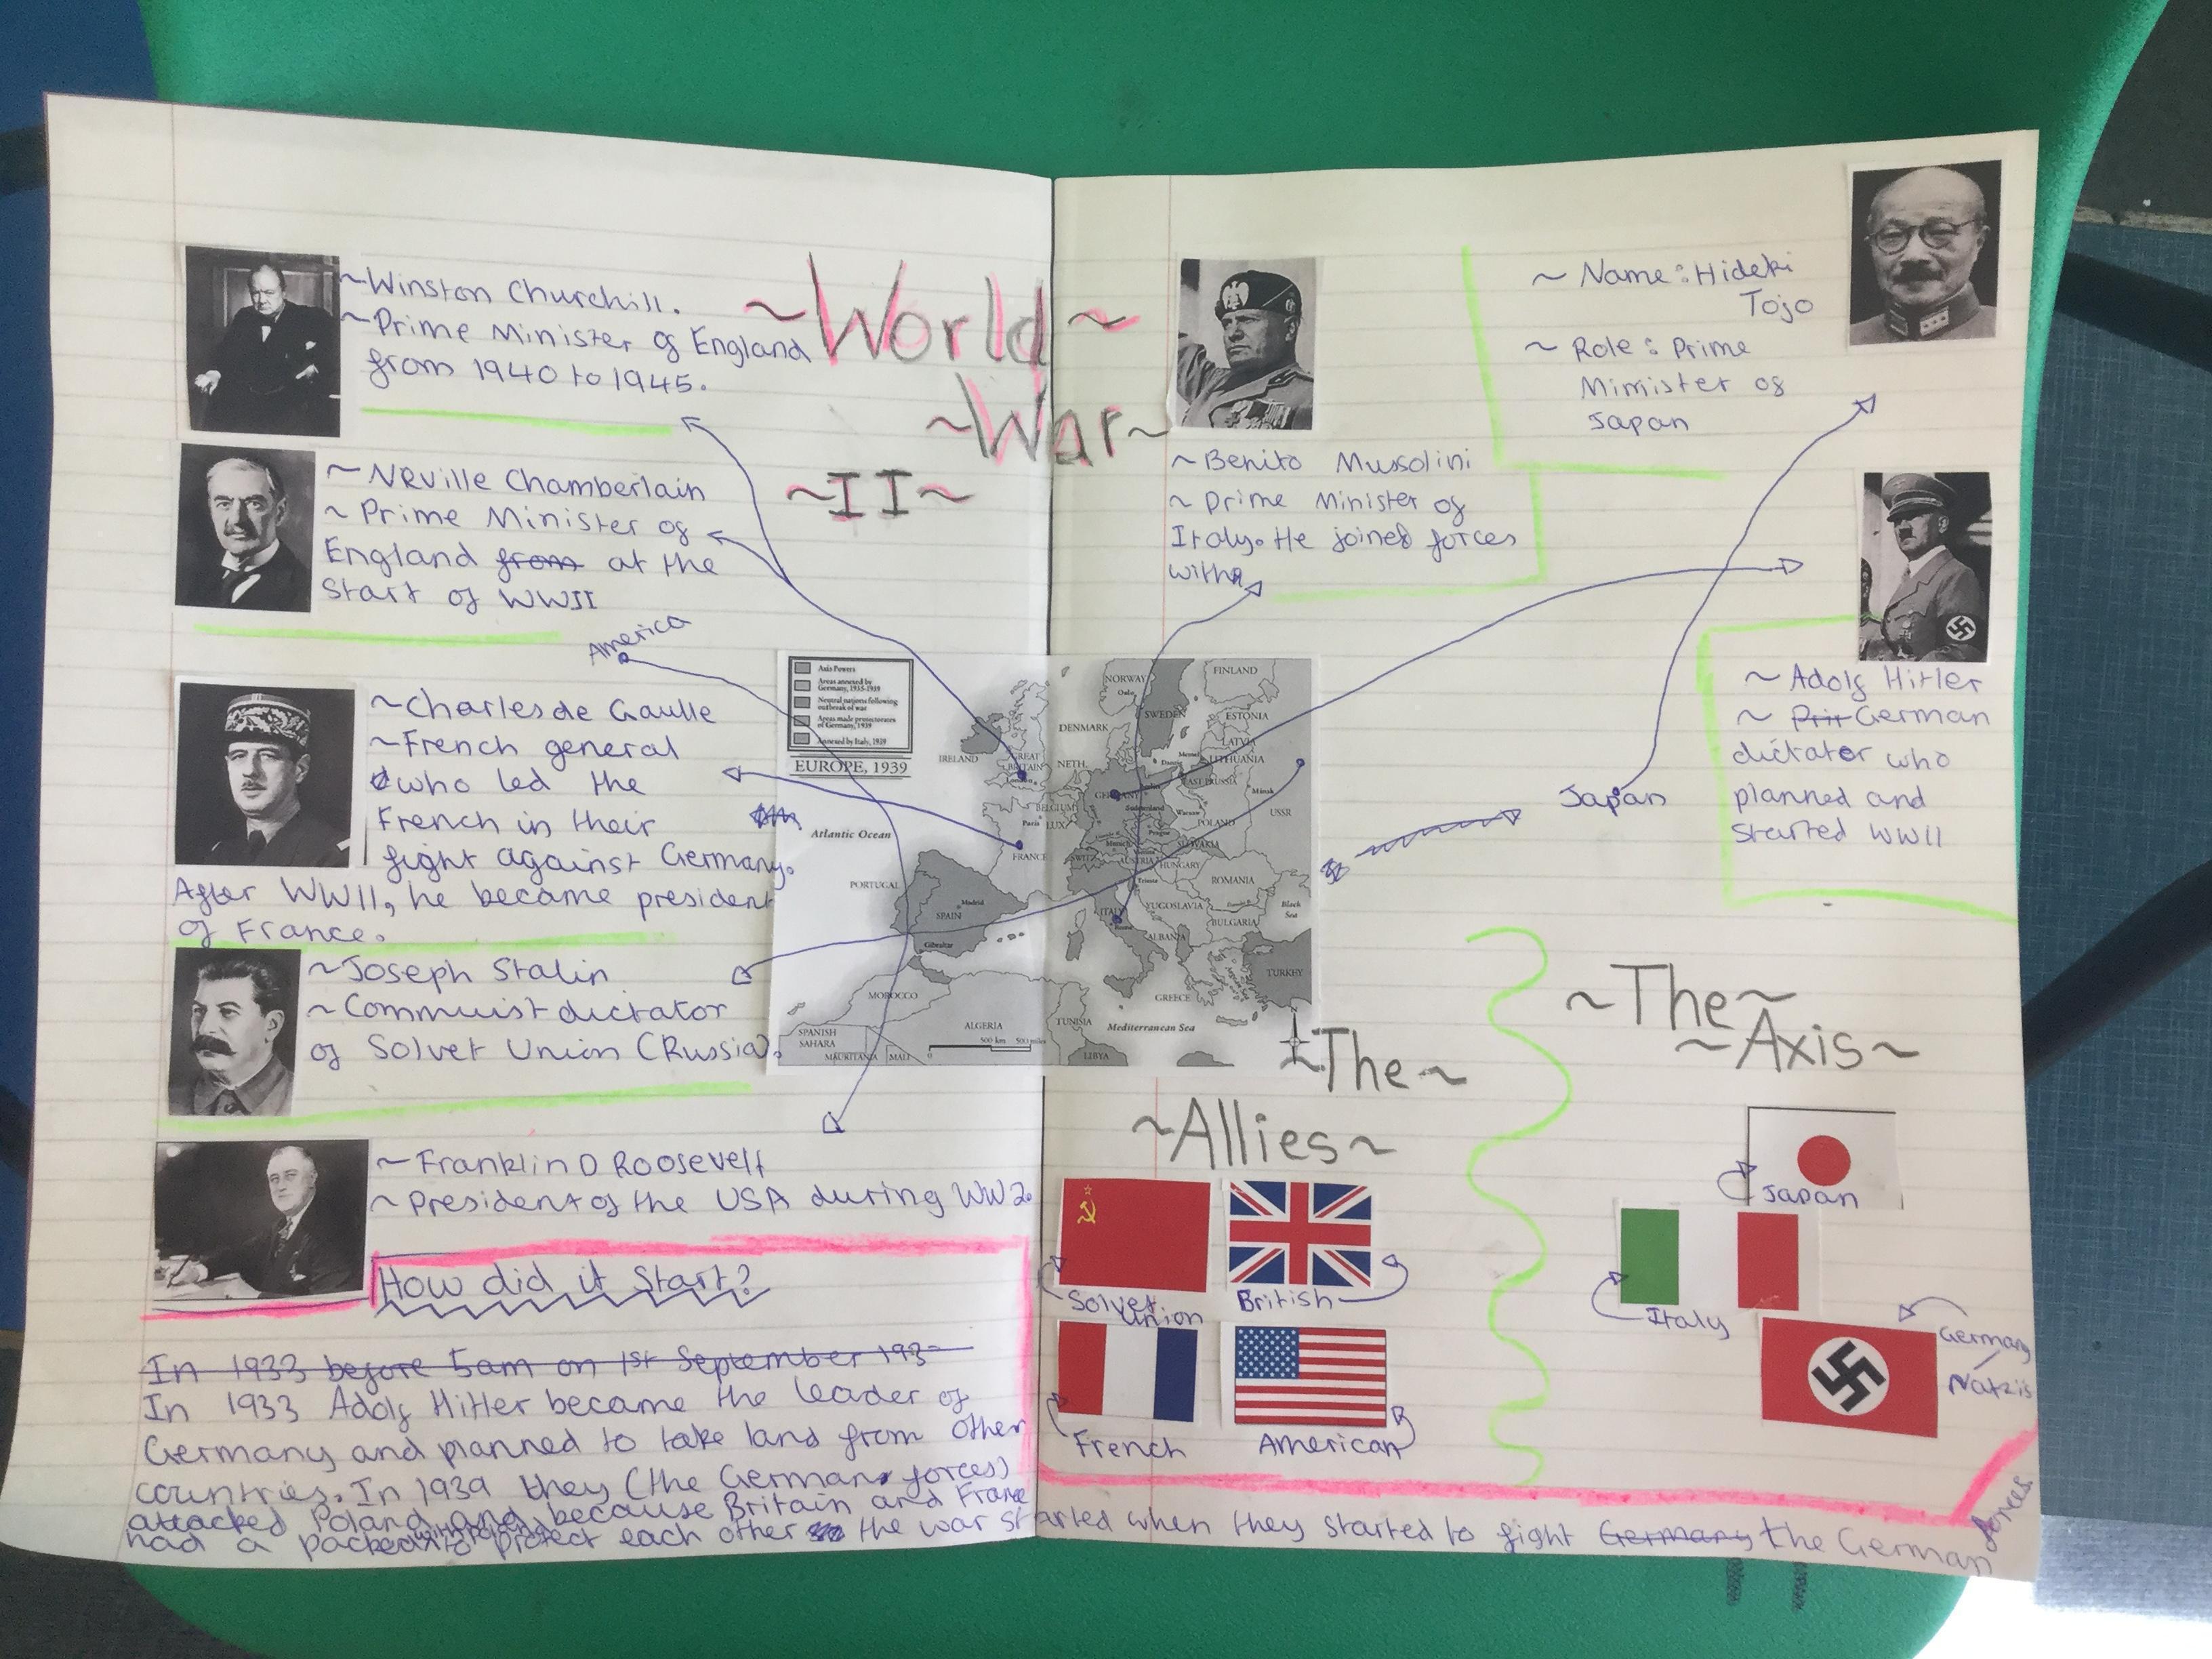 ~World~
~War~
~II~
~Winston Churchill.
~Prime Minister of England
from 1940 to 1945.
~Neville Chamberlain
~Prime Minister of
England from at the
start of WWII
America
~Charles de Gaulle
~French general
who led the
French in their
fight against Germany.
After WWII, he became president
of France.
~Joseph Stalin
~Commuist dictator
of Solvet Union (Russia).
~Franklin D Roosevelt
~President of the USA during WW2.
How did it Start?
In 1933 before 5am on 1st September 193
In 1933 Adolf Hitler became the leader of
Germany and planned to take land from other
countries. In 1939 they (the German forces)
attacked Poland and because Britain and France
had a packed with Poland to protect each other the war started when they started to fight Germany the German
forces
~Benito Mussolini
~Prime Minister of
Italy. He joined forces
with
~Name: Hideki
Tojo
~Role: Prime
Minister of
Japan
~Adolf Hitler
~Prir German
dictator who
planned and
started WWII
Japan
Axis Powers
Areas annexed by
Germany, 1935-1939
Neutral nations following
outbreak of war
Areas made protectorates
of Germany, 1939
Annexed by Italy, 1939
EUROPE, 1939
NORWAY
Oslo
FINLAND
SWEDEN
ESTONIA
LATVIA
LITHUANIA
DENMARK
IRELAND
GREAT
BRITAIN
London
NETH.
Danzig
EAST PRUSSIA
Minsk
USSR
GERMANY
BELGIUM
LUX.
Paris
Sudetenland
Prague
Warsaw
POLAND
Atlantic Ocean
FRANCE
SWITZ.
Munich
AUSTRIA
SLOVAKIA
HUNGARY
ROMANIA
Trieste
PORTUGAL
SPAIN
Madrid
ITALY
Rome
YUGOSLAVIA
BULGARIA
Black
Sea
Gibraltar
ALBANIA
TURKEY
GREECE
MOROCCO
SPANISH
SAHARA
MAURITANIA
MALI
ALGERIA
TUNISIA
Mediterranean Sea
LIBYA
500 km
500 miles
N
~The~
~Allies~
Solvet
Union
British
French
American
~The~
~Axis~
Japan
Italy
Germany
Natzis